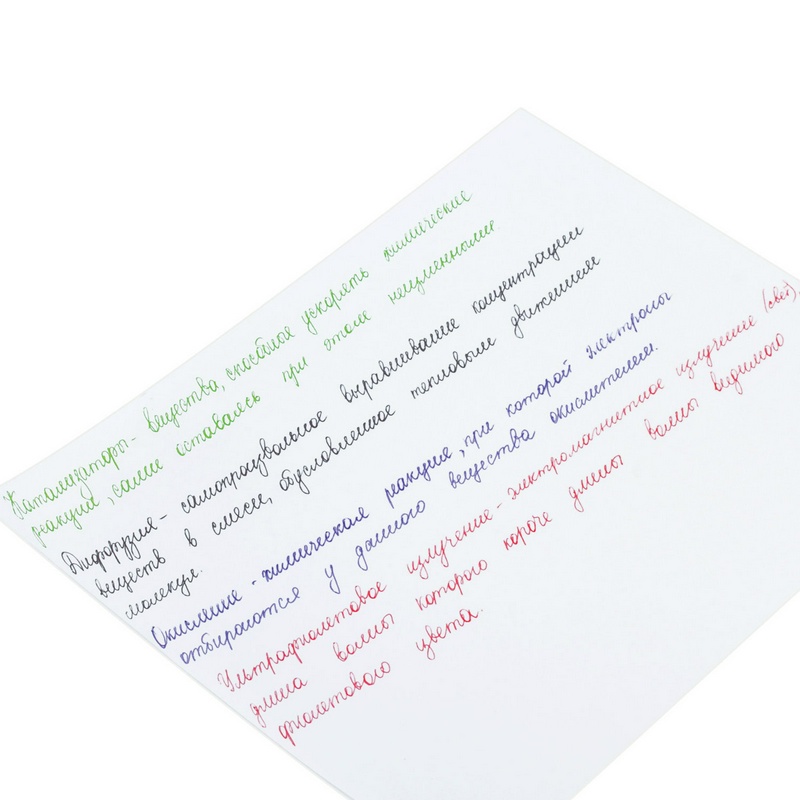 Катализаторы - вещества, способная ускорять химические
реакции, сами оставаясь при этом неизменными.
Диффузия - самопроизвольное выравнивание концентрации
веществ в смеси, обусловленное тепловым движением
молекул.
Окисление - химическая реакция, при которой электроны
отбираются у данного вещества окислителем.
Ультрафиолетовое излучение - электромагнитное излучение (свет),
длина волны которого короче длины волны видимого
фиолетового цвета.